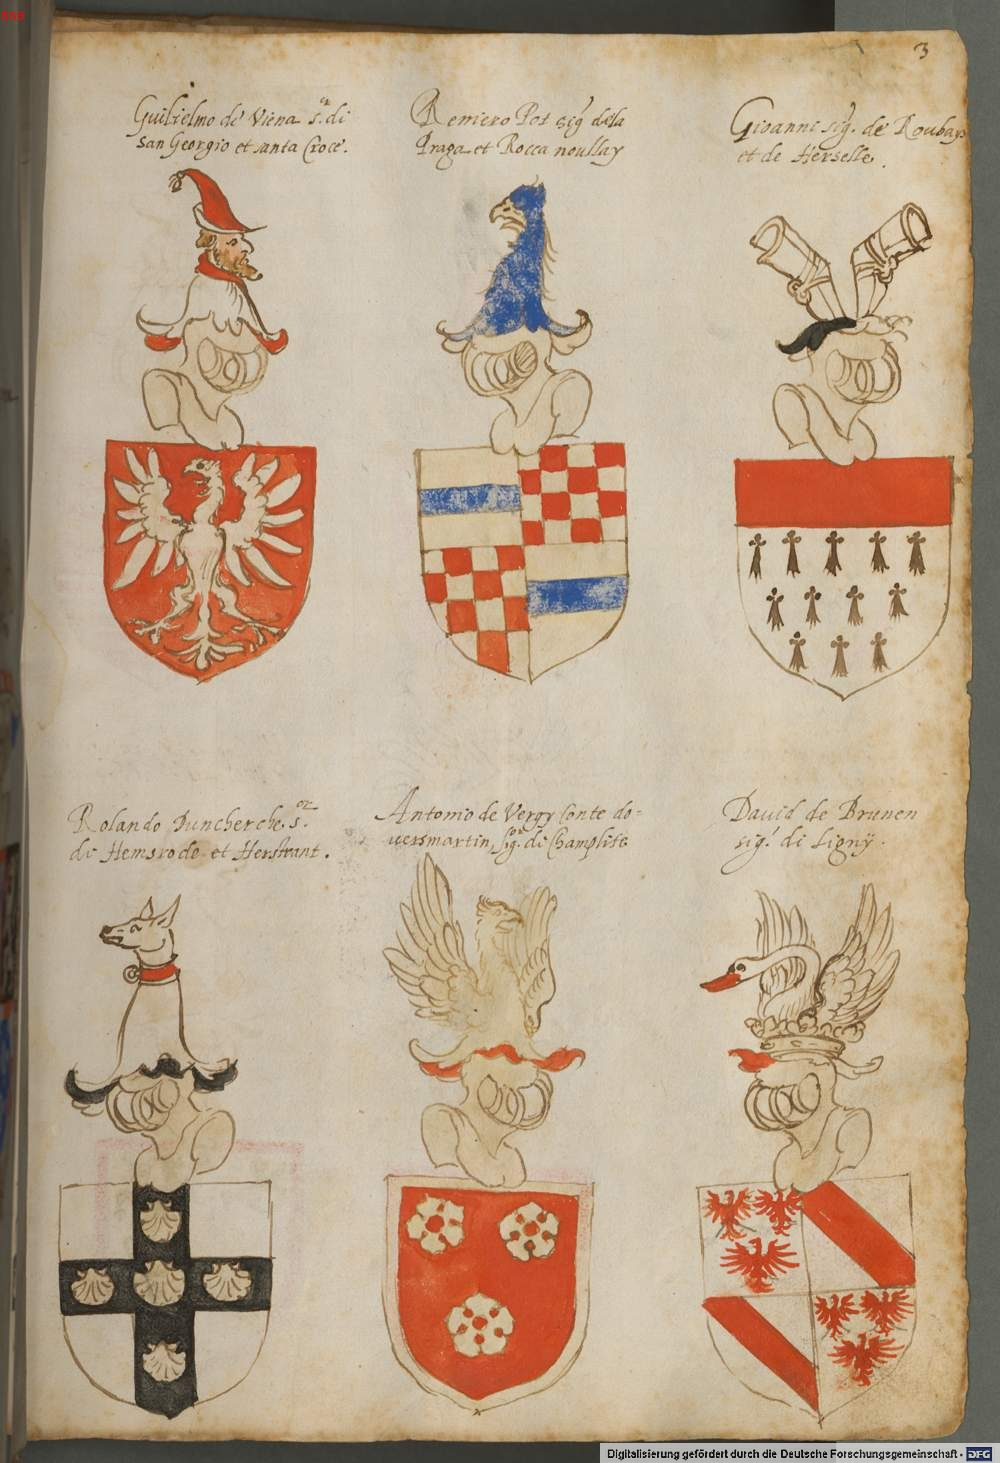 3
Guilielmo de Viena s.or di
San Georgio et santa Croce.
Reniero Pot sig.r dela
Praga et Rocca noullay
Gioanni sig.r de Roubays
et de Herselle.
Rolando Duncherche s.or
di Hemsrode et Herstrant.
Antonio de Vergy Conte do=
uersmartin, sig.or di Champlite
David de Brunen
sig.r di Ligny.
Digitalisierung gefördert durch die Deutsche Forschungsgemeinschaft - DFG